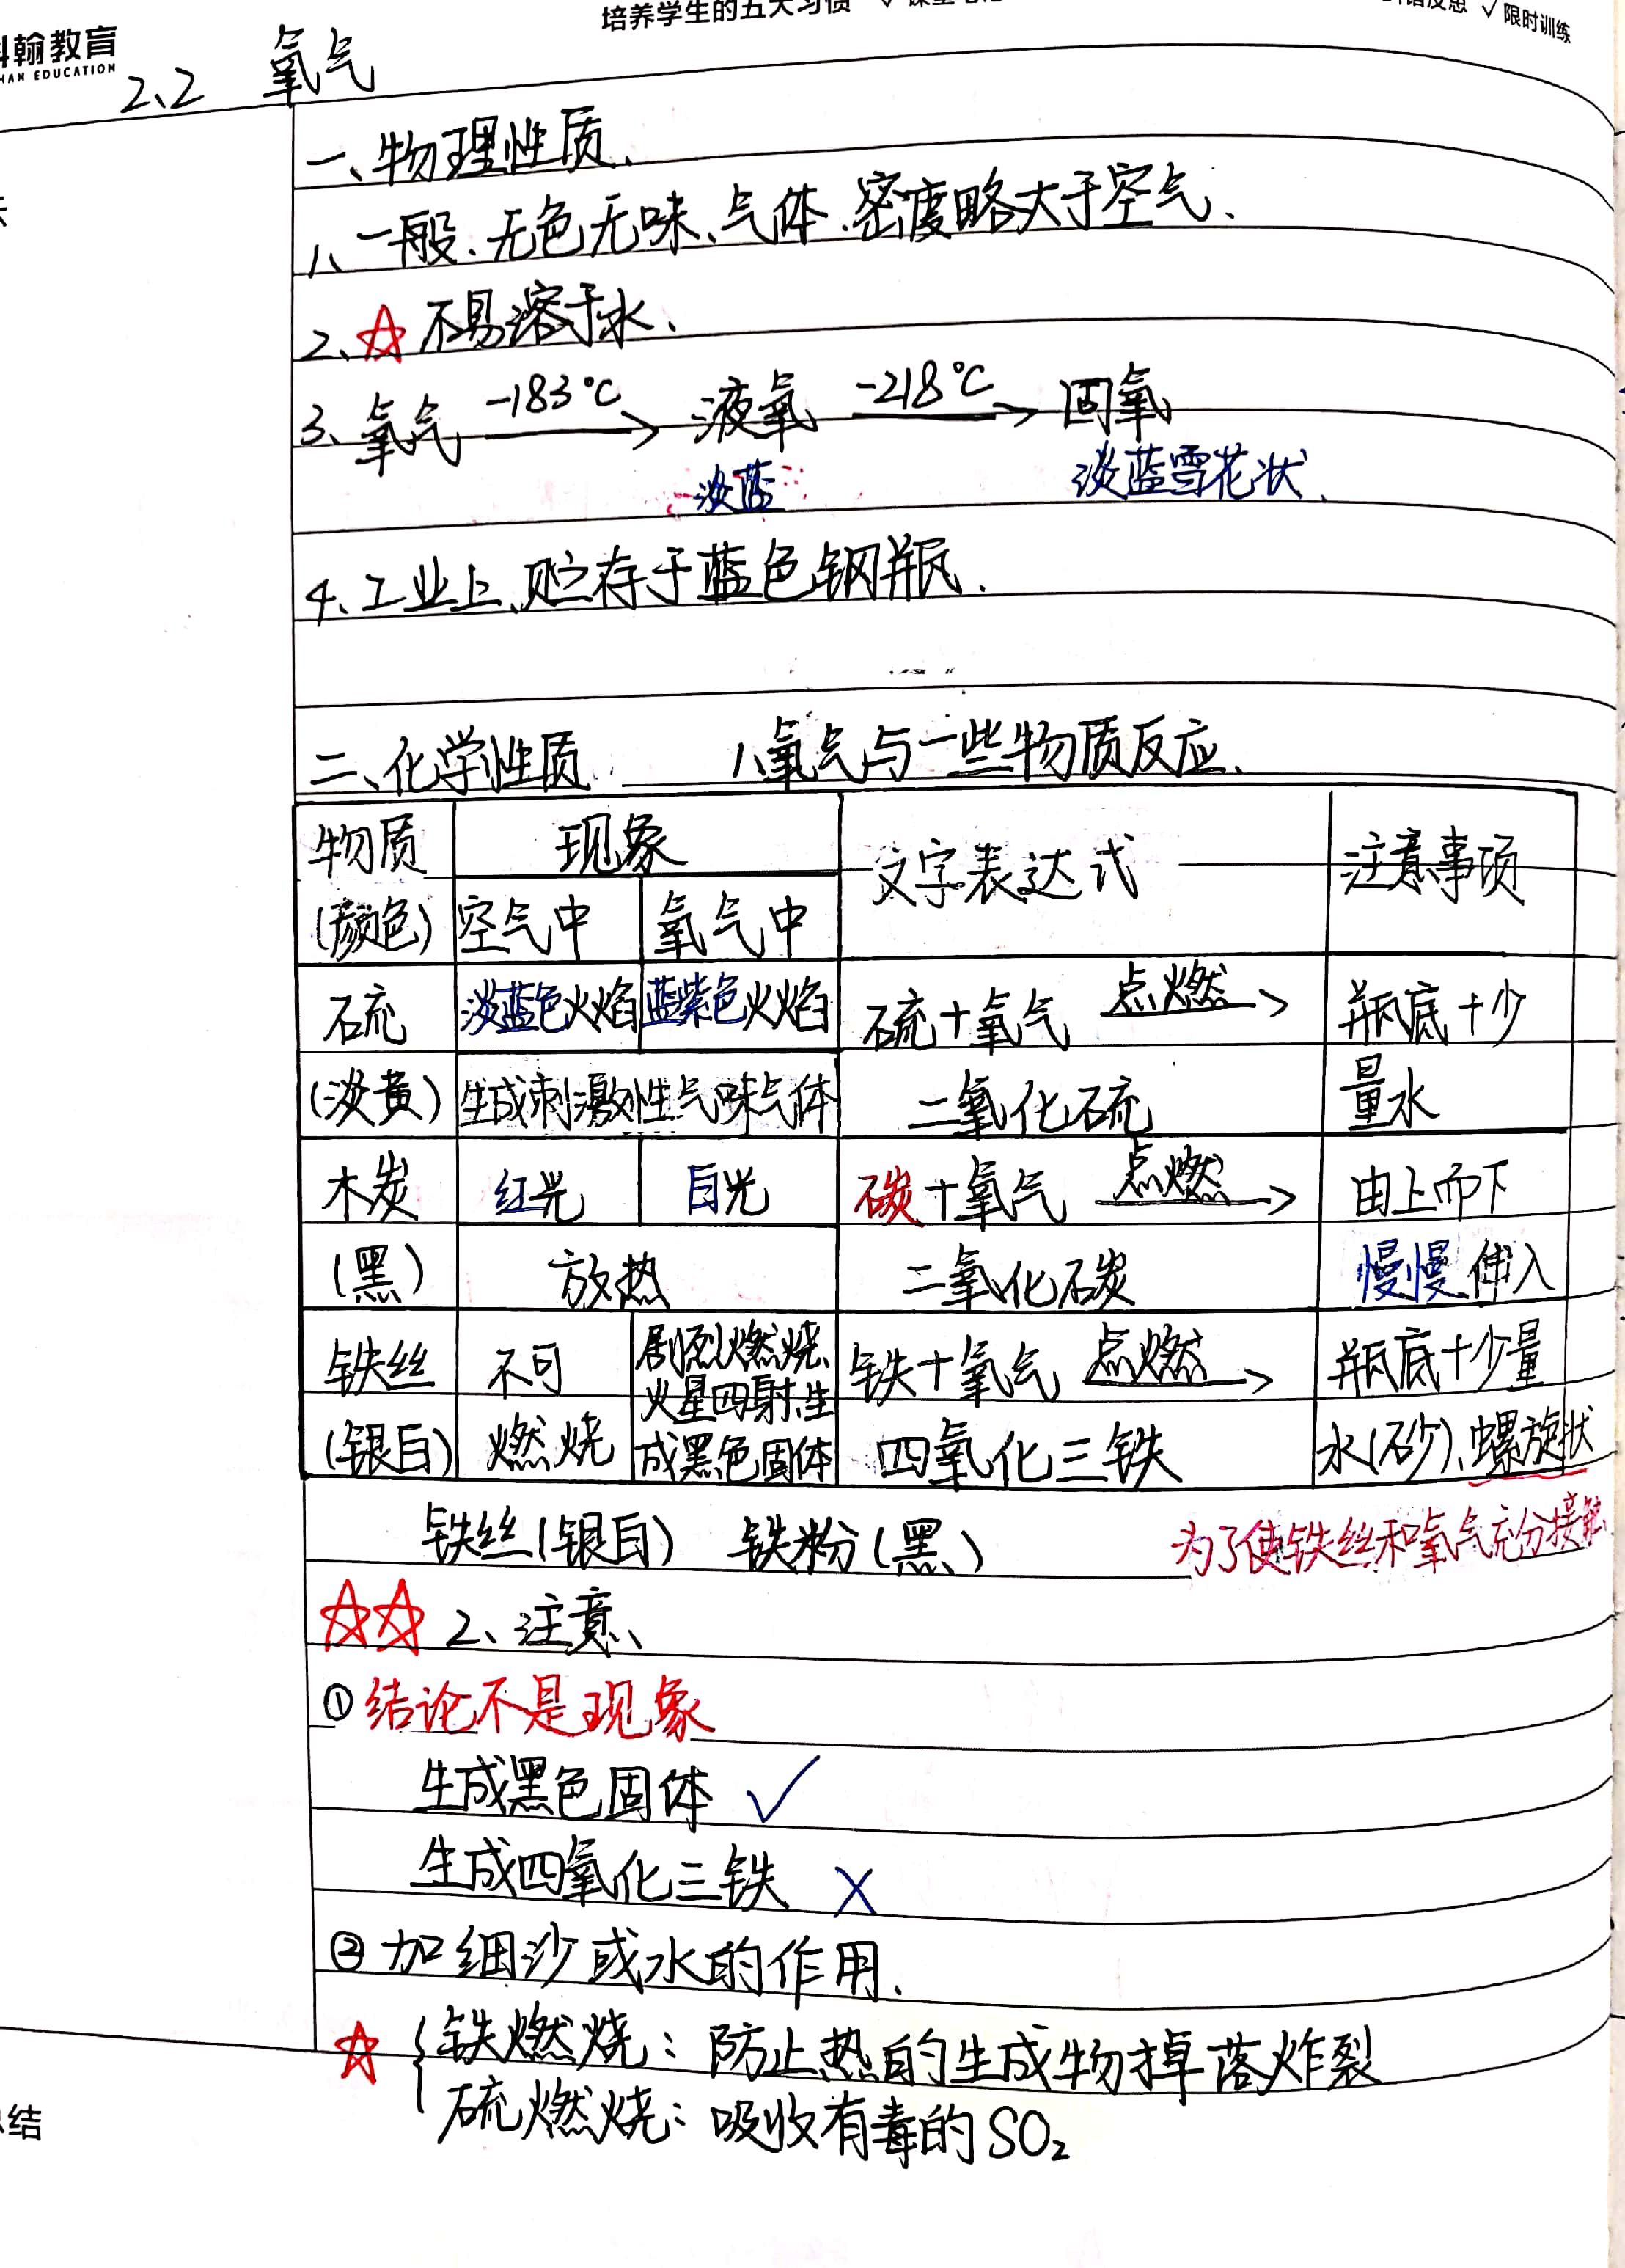 培养学生的五大习惯
√ 限时训练
翰教育
HAN EDUCATION
2、2 氧气
一、物理性质、
1、一般、无色无味、气体、密度略大于空气、
2、☆不易溶于水、
3、氧气 -183℃→ 液氧 -218℃→ 固氧
淡蓝 淡蓝雪花状、
4、工业上、贮存于蓝色钢瓶、
二、化学性质 1、氧气与一些物质反应、
物质 现象 文字表达式 注意事项
(颜色) 空气中 氧气中
石硫 淡蓝色火焰 蓝紫色火焰 硫+氧气 点燃→ 瓶底+少
(淡黄) 生成刺激性气味气体 二氧化硫 量水
木炭 红光 白光 碳+氧气 点燃→ 由上而下
(黑) 放热 二氧化碳 慢慢伸入
铁丝 不可 剧烈燃烧、 铁+氧气 点燃→ 瓶底+少量
火星四射、生
(银白) 燃烧 成黑色固体 四氧化三铁 水(砂)、螺旋状
铁丝(银白) 铁粉(黑) 为了使铁丝和氧气充分接触
☆☆ 2、注意、
① 结论不是现象
生成黑色固体 √
生成四氧化三铁 X
② 加细沙或水的作用、
☆ { 铁燃烧：防止热的生成物掉落炸裂
硫燃烧：吸收有毒的SO₂
结